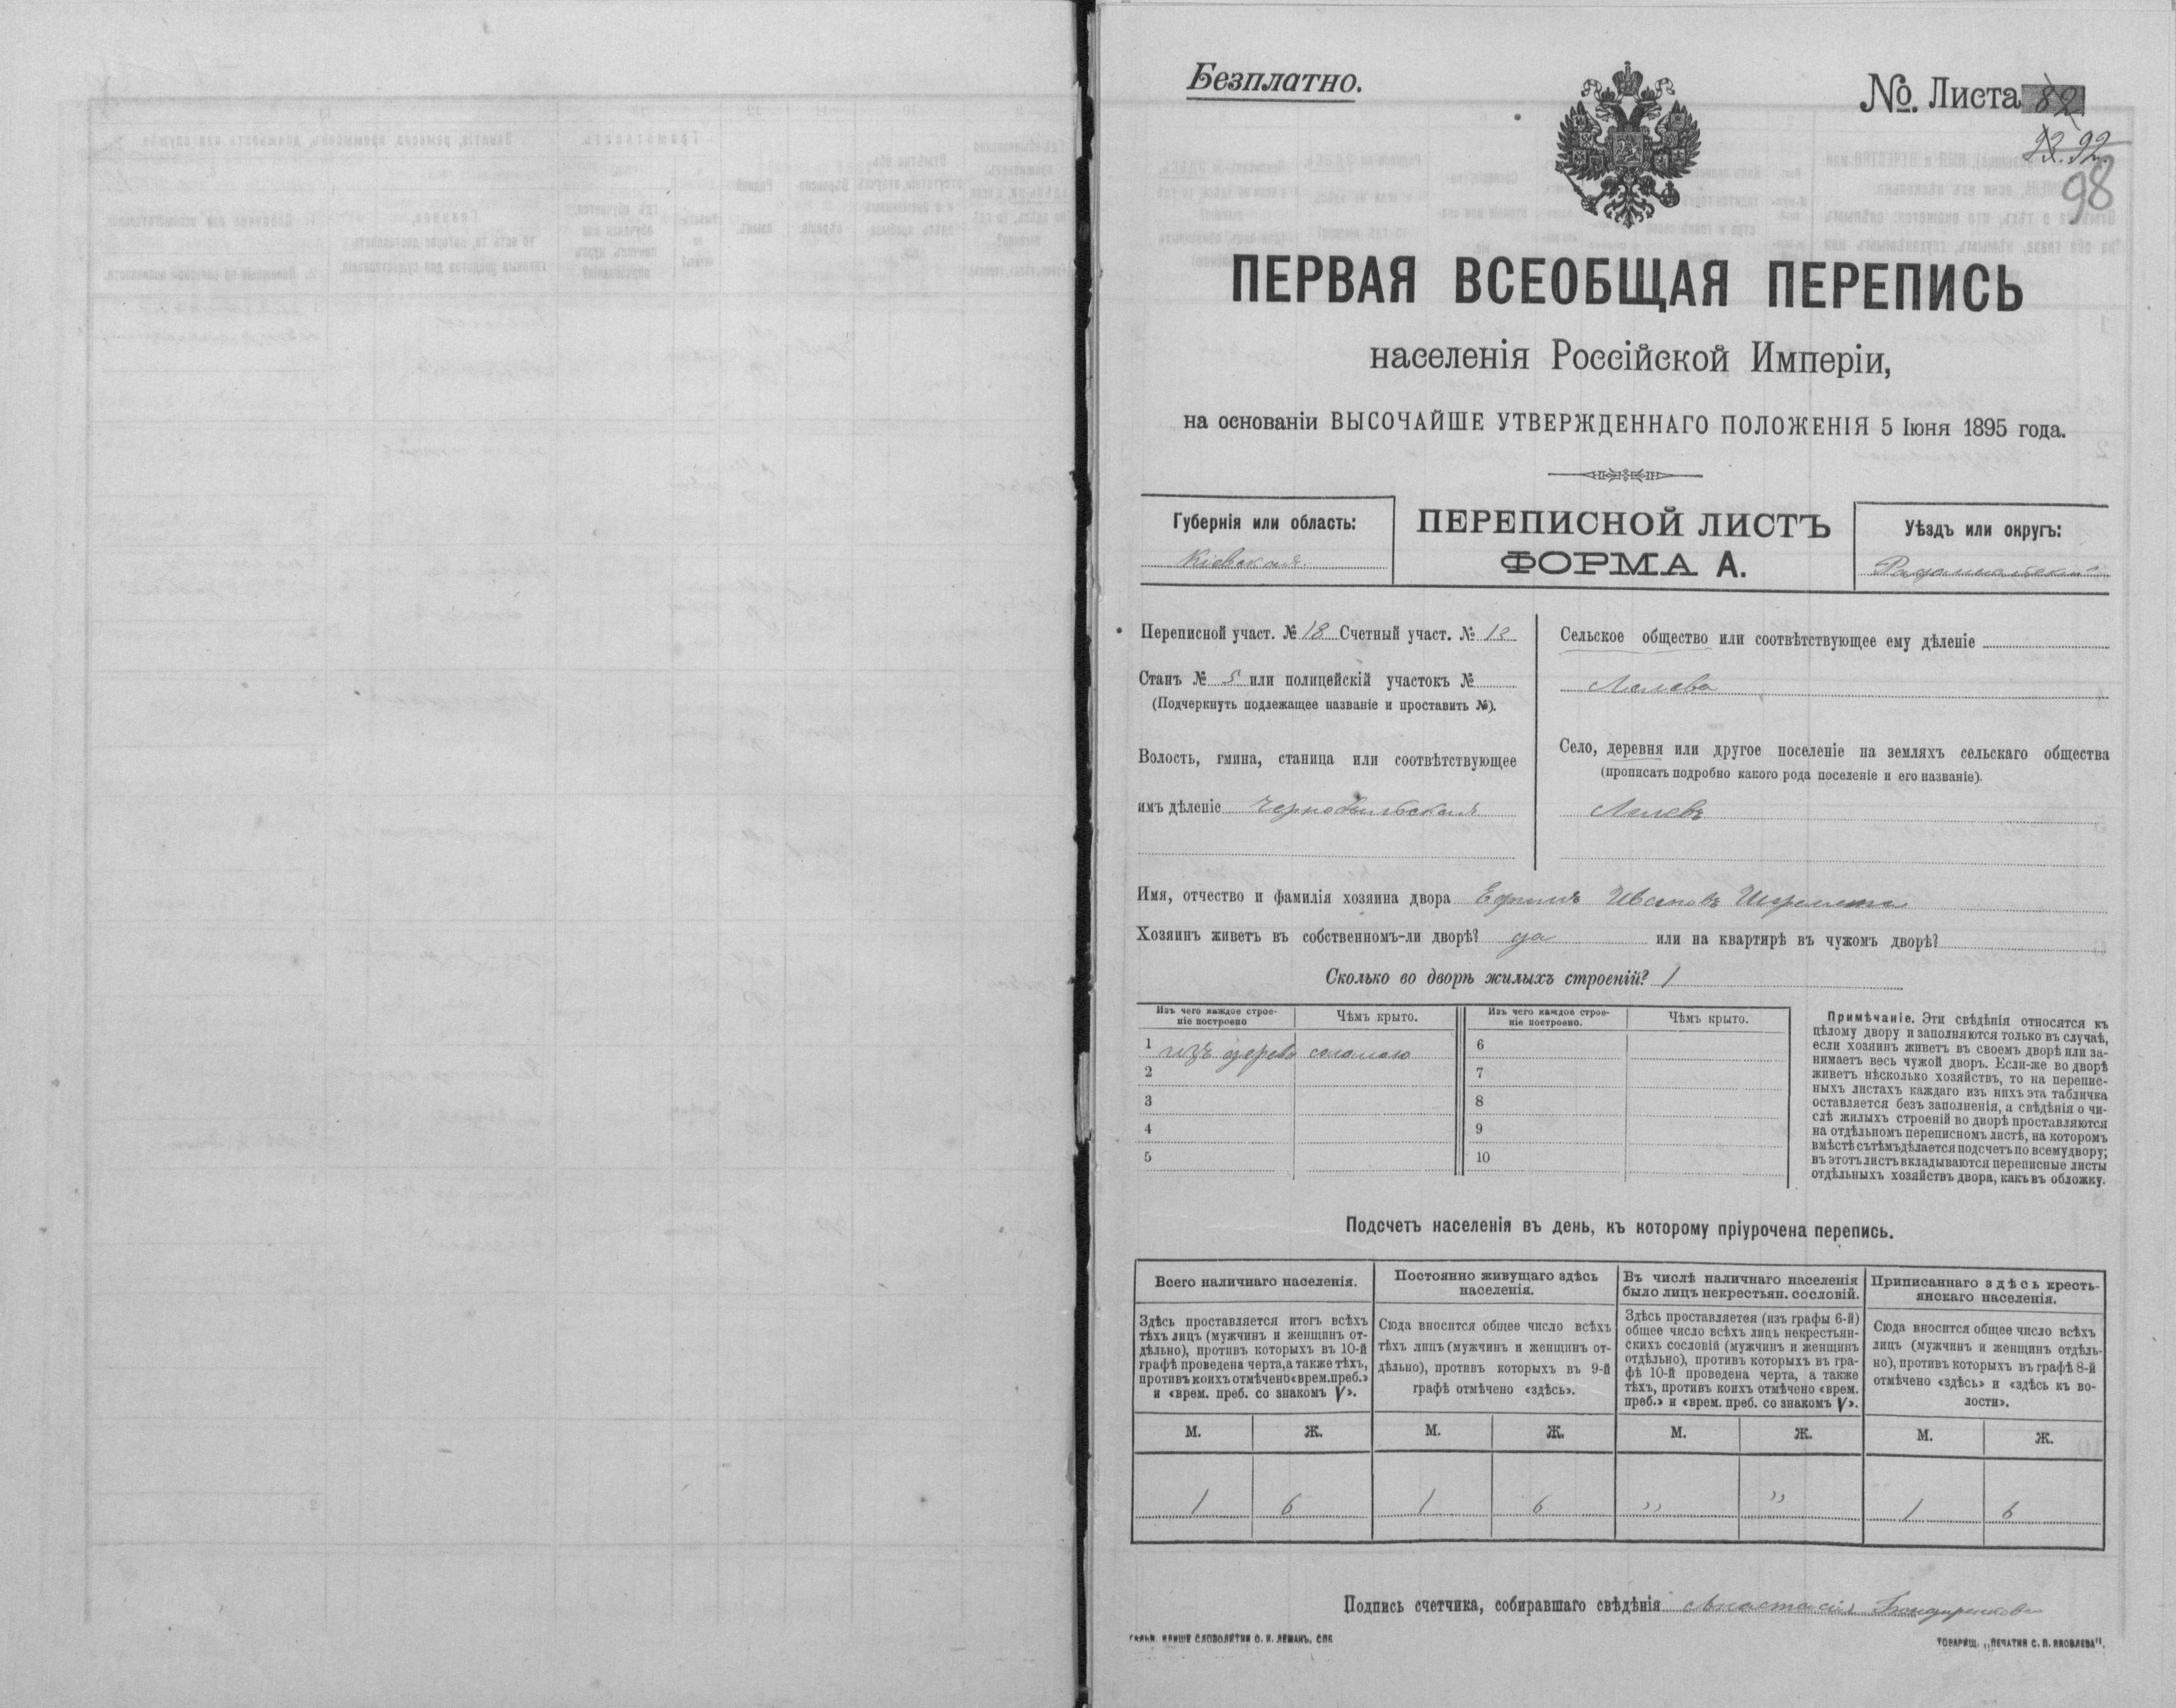 Безплатно.
№. Листа 82
92.
98
ПЕРВАЯ ВСЕОБЩАЯ ПЕРЕПИСЬ
населенія Россійской Имперіи,
на основаніи ВЫСОЧАЙШЕ УТВЕРЖДЕННАГО ПОЛОЖЕНІЯ 5 Іюня 1895 года.
Губернія или область:
Кіевская.
ПЕРЕПИСНОЙ ЛИСТЪ
ФОРМА А.
Уѣздъ или округъ:
Радомысльскій
Переписной участ. № 18 Счетный участ. № 13
Станъ № 5 или полицейскій участокъ №
(Подчеркнуть подлежащее названіе и проставить №).
Волость, гмина, станица или соотвѣтствующее
имъ дѣленіе Чернобыльская
Сельское общество или соотвѣтствующее ему дѣленіе
Лелева
Село, деревня или другое поселеніе на земляхъ сельскаго общества
(прописать подробно какого рода поселеніе и его названіе).
Лелевъ
Имя, отчество и фамилія хозяина двора Ефимъ Ивановъ Шеремета
Хозяинъ живетъ въ собственномъ-ли дворѣ? да или на квартирѣ въ чужомъ дворѣ?
Сколько во дворѣ жилыхъ строеній? 1
Изъ чего каждое строе-
ніе построено
Чѣмъ крыто.
Изъ чего каждое строе-
ніе построено.
Чѣмъ крыто.
1 изъ дерева соломою
2
3
4
5
6
7
8
9
10
Примѣчаніе. Эти свѣдѣнія относятся къ
цѣлому двору и заполняются только въ случаѣ,
если хозяинъ живетъ въ своемъ дворѣ или за-
нимаетъ весь чужой дворъ. Если-же во дворѣ
живетъ нѣсколько хозяйствъ, то на перепис-
ныхъ листахъ каждаго изъ нихъ эта табличка
оставляется безъ заполненія, а свѣдѣнія о чи-
слѣ жилыхъ строеній во дворѣ проставляются
на отдѣльномъ переписномъ листѣ, на которомъ
вмѣстѣ съ тѣмъ дѣлается подсчетъ по всему двору;
въ этотъ листъ вкладываются переписные листы
отдѣльныхъ хозяйствъ двора, какъ въ обложку.
Подсчетъ населенія въ день, къ которому пріурочена перепись.
Всего наличнаго населенія.
Здѣсь проставляется итогъ всѣхъ
тѣхъ лицъ (мужчинъ и женщинъ от-
дѣльно), противъ которыхъ въ 10-й
графѣ проведена черта, а также тѣхъ,
противъ коихъ отмѣчено «врем. преб.»
и «врем. преб. со знакомъ V».
Постоянно живущаго здѣсь
населенія.
Сюда вносится общее число всѣхъ
тѣхъ лицъ (мужчинъ и женщинъ от-
дѣльно), противъ которыхъ въ 9-й
графѣ отмѣчено «здѣсь».
Въ числѣ наличнаго населенія
было лицъ некрестьян. сословій.
Здѣсь проставляется (изъ графы 6-й)
общее число всѣхъ лицъ некрестьян-
скихъ сословій (мужчинъ и женщинъ
отдѣльно), противъ которыхъ въ гра-
фѣ 10-й проведена черта, а также
тѣхъ, противъ коихъ отмѣчено «врем.
преб.» и «врем. преб. со знакомъ V».
Приписаннаго здѣсь кресть-
янскаго населенія.
Сюда вносится общее число всѣхъ
лицъ (мужчинъ и женщинъ отдѣль-
но), противъ которыхъ въ графѣ 8-й
отмѣчено «здѣсь» и «здѣсь къ во-
лости».
М. Ж. М. Ж. М. Ж. М. Ж.
1 6 1 6 " " 1 6
Подпись счетчика, собиравшаго свѣдѣнія Анастасія Бондаренкова
КЛИШЕ СЛОВОЛИТНИ О. И. ЛЕМАНЪ, СПБ
ТОВАРИЩ. „ПЕЧАТНЯ С. П. ЯКОВЛЕВА".